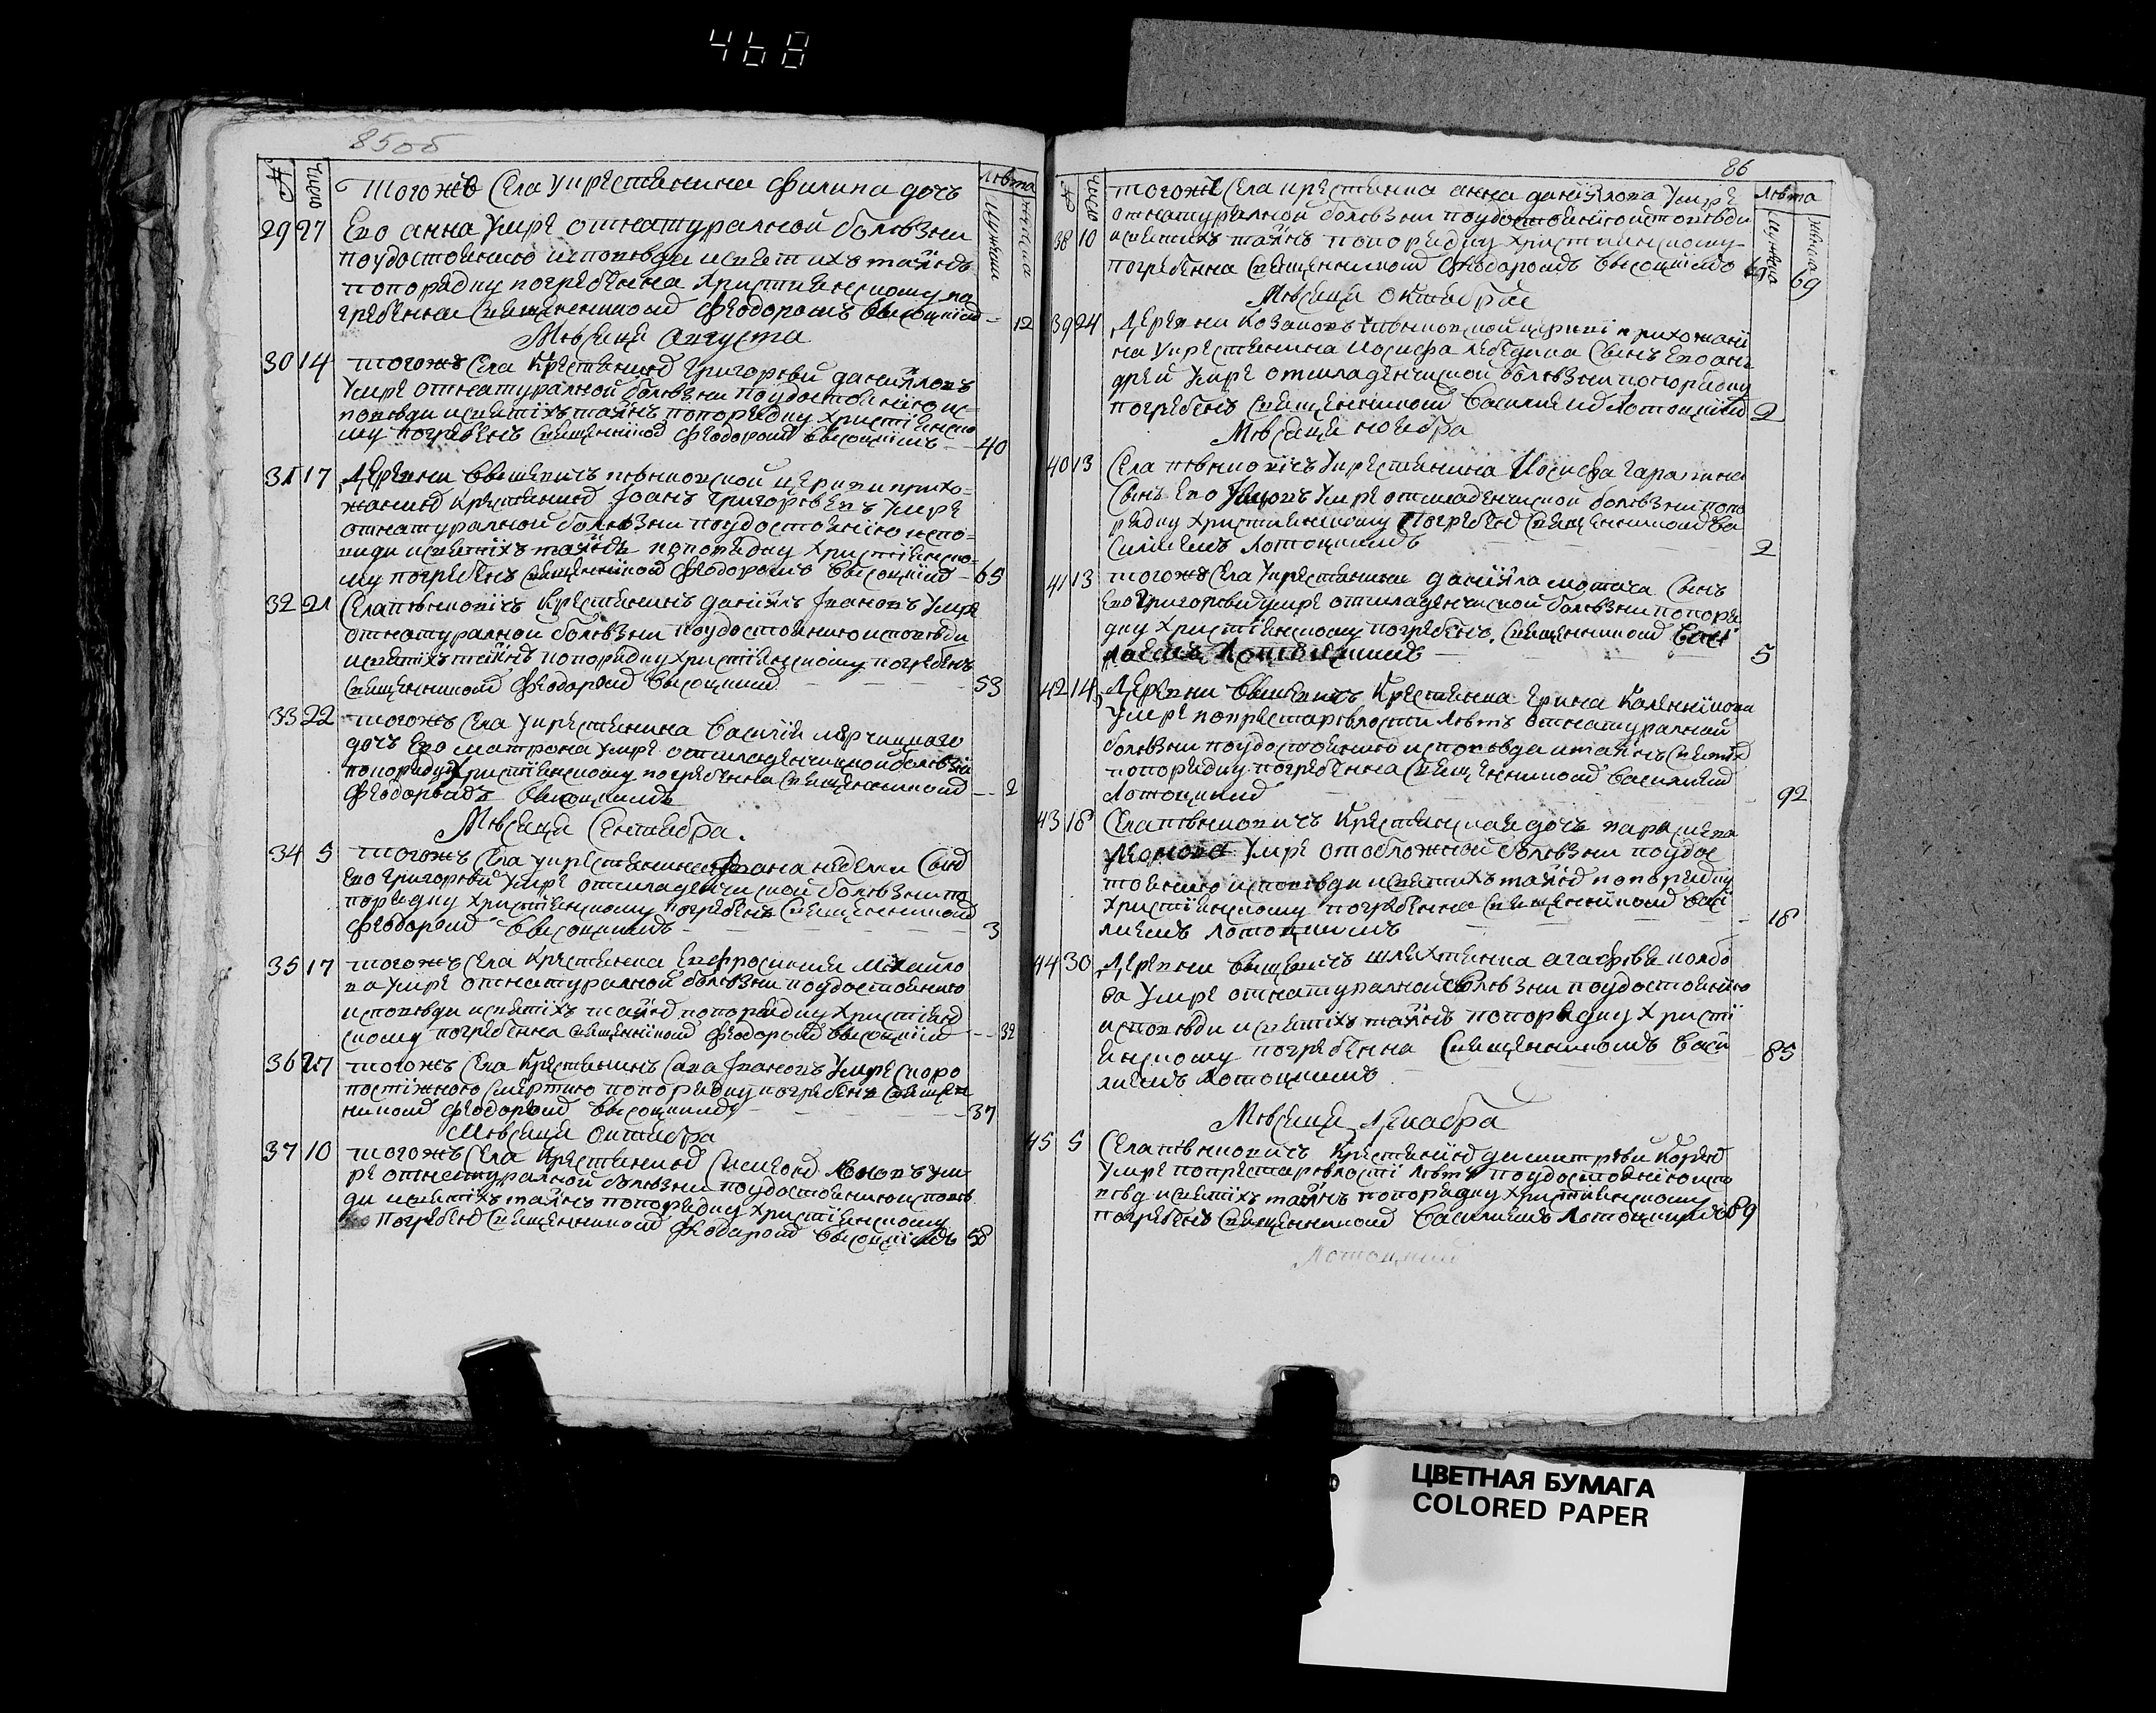 468
85об
№
Число
Лѣта
Мужеска
Женска
Тогожъ Села Крестянина Филипа дочь
29 27 Его анна умре отнатуралной болѣзни
поудостоению исповѣди исвятихъ таинъ
попорядку погребенна християнскому по
гребенна Священикомъ Феодоромъ Висоцкимъ 12
Мѣсяца Августа
30 14 тогожъ Села Крестянинъ Григорѣй даниловъ
умре отнатуралной болѣзни поудостоению ис=
повѣди исвятіхъ таинъ попорядку христіянско
му погребенъ Священикомъ Феодоромъ Висоцкимъ 40
31 17 Деревни Вишевичъ церкви прихо=
жанинъ Крестянинъ Іоанъ Григорѣевъ умре
отнатуралной болѣзни поудостоению испо=
веди исвятіхъ таинъ попорядку христіянско=
му погребенъ священикомъ Феодоромъ Висоцкимъ 65
32 21 Села Крестянинъ даніилъ Івановъ умре
отнатуралной болѣзни поудостоению исповѣди
исвятіхъ таинъ попорядку христіянскому погребенъ
Священикомъ Феодоромъ Висоцкимъ 53
33 22 тогожъ Села Крестянина Василія
дочь Его матрона умре отмладенческой болѣзни
попорядку Христіянскому погребенна Священикомъ
Феодоромъ Висоцкимъ 2
Мѣсяца Сентября.
34 5 тогожъ Села Крестянина Івана недели Синъ
Его Григорѣй умре отмладенческой болѣзни по
порядку христіянскому погребенъ Священникомъ
Феодоромъ Висоцкимъ 3
35 17 тогожъ Села Крестянка Евфросиния Михайло
ва умре отнатуралной болѣзни поудостоению
исповѣди исвятіхъ таинъ попорядку Христіян
скому погребенна священікомъ Феодоромъ Висоцкимъ 32
36 27 тогожъ Села Крестянинъ Сава Івановъ умре скоро
постіжною Смертию попорядку погребенъ Священ
никомъ Феодоромъ Висоцкимъ 37
Мѣсяца Октября
37 10 тогожъ Села Крестянинъ Симеонъ уми
ре отнатуралной болѣзни поудостоению исповѣ
ди исвятіхъ таинъ попорядку христіянскому
погребенъ Священникомъ Феодоромъ Висоцкимъ 58
86
№
Число
Лѣта
Мужеска
Женска
тогожъ Села крестянка анна даніилова умре
отнатуралной болѣзни поудостоению исповѣди
38 10 исвятихъ таинъ попорядку християнскому
погребенна Священникомъ Феодоромъ Висоцкимъ 69
Мѣсяца Октября
39 24 Деревни церкві прихожани
на Крестянина Иосифа лебедина Синъ Его ан
дрей умре отмладенческой болѣзни попорядку
погребенъ Священникомъ Василиемъ Лотоцкимъ 2
Мѣсяца ноября
40 13 Села Крестянина Иосифа
Синъ Его умре отмладенческой болѣзни попо
рядку християнскому Погребенъ Священникомъ Ва
силиемъ Лотоцкимъ 2
41 13 тогожъ Села Крестянина даніила Синъ
Его Григорѣй умре отмладенческой болѣзни попоря
дку христіянскому погребенъ Священникомъ Васи
лиемъ Лотоцкимъ 5
42 14 Деревни Вишевичъ Крестянка Ерина
умре попрестарѣлости лѣтъ отнатуралной
болѣзни поудостоению исповѣди итаинъ Святихъ
попорядку погребенна Священникомъ Василиемъ
Лотоцкимъ 92
43 18 Села Крестянская дочь параскева
умре отобложной болѣзни поудос
тоению исповѣди исвятихъ таинъ попорядку
христіянскому погребенна Священникомъ Васи
лиемъ Лотоцкимъ 18
44 30 Деревни Вишевичъ шляхтянка агафѣя
умре отнатуралной болѣзни поудостоению
исповѣди исвятіхъ таинъ попорядку Христі
янскому погребенна Священникомъ Васи
лиемъ Лотоцкимъ 85
Мѣсяца Декабря
45 5 Села Крестянинъ димитрѣй
умре попрестарѣлості лѣтъ поудостоению испо
вѣд исвятіхъ таинъ попорядку християнскому
погребенъ Священникомъ Василиемъ Лотоцкимъ 89
Лотоцкий
ЦВЕТНАЯ БУМАГА
COLORED PAPER